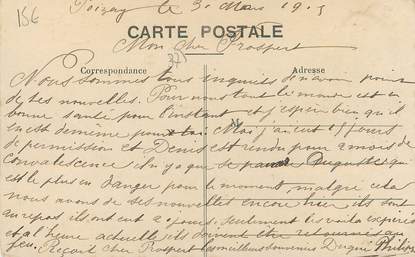 156
Poizay le 3 Mars 1915
CARTE POSTALE
Mon cher Prospert
325
Correspondance
Adresse
Nous sommes tous inquiets de n'avoir point
de tes nouvelles. Pour nous tout le monde est en
bonne santé pour l'instant et j'espère bien qu'il
en est de même pour toi. Moi j'ai eut 11 jours
de permission et Denis est rendu pour 2 mois de
convalescence il n'y a que
est le plus en danger pour le moment malgré cela
nous avons de ses nouvelles encore hier ils sont
au repos ils ont eut 2 jours. Seulement les voila expirés
et a l'heure actuelle ils doivent être retournés au
feu. Reçoit cher Prospert les meilleurs souvenirs Philippe